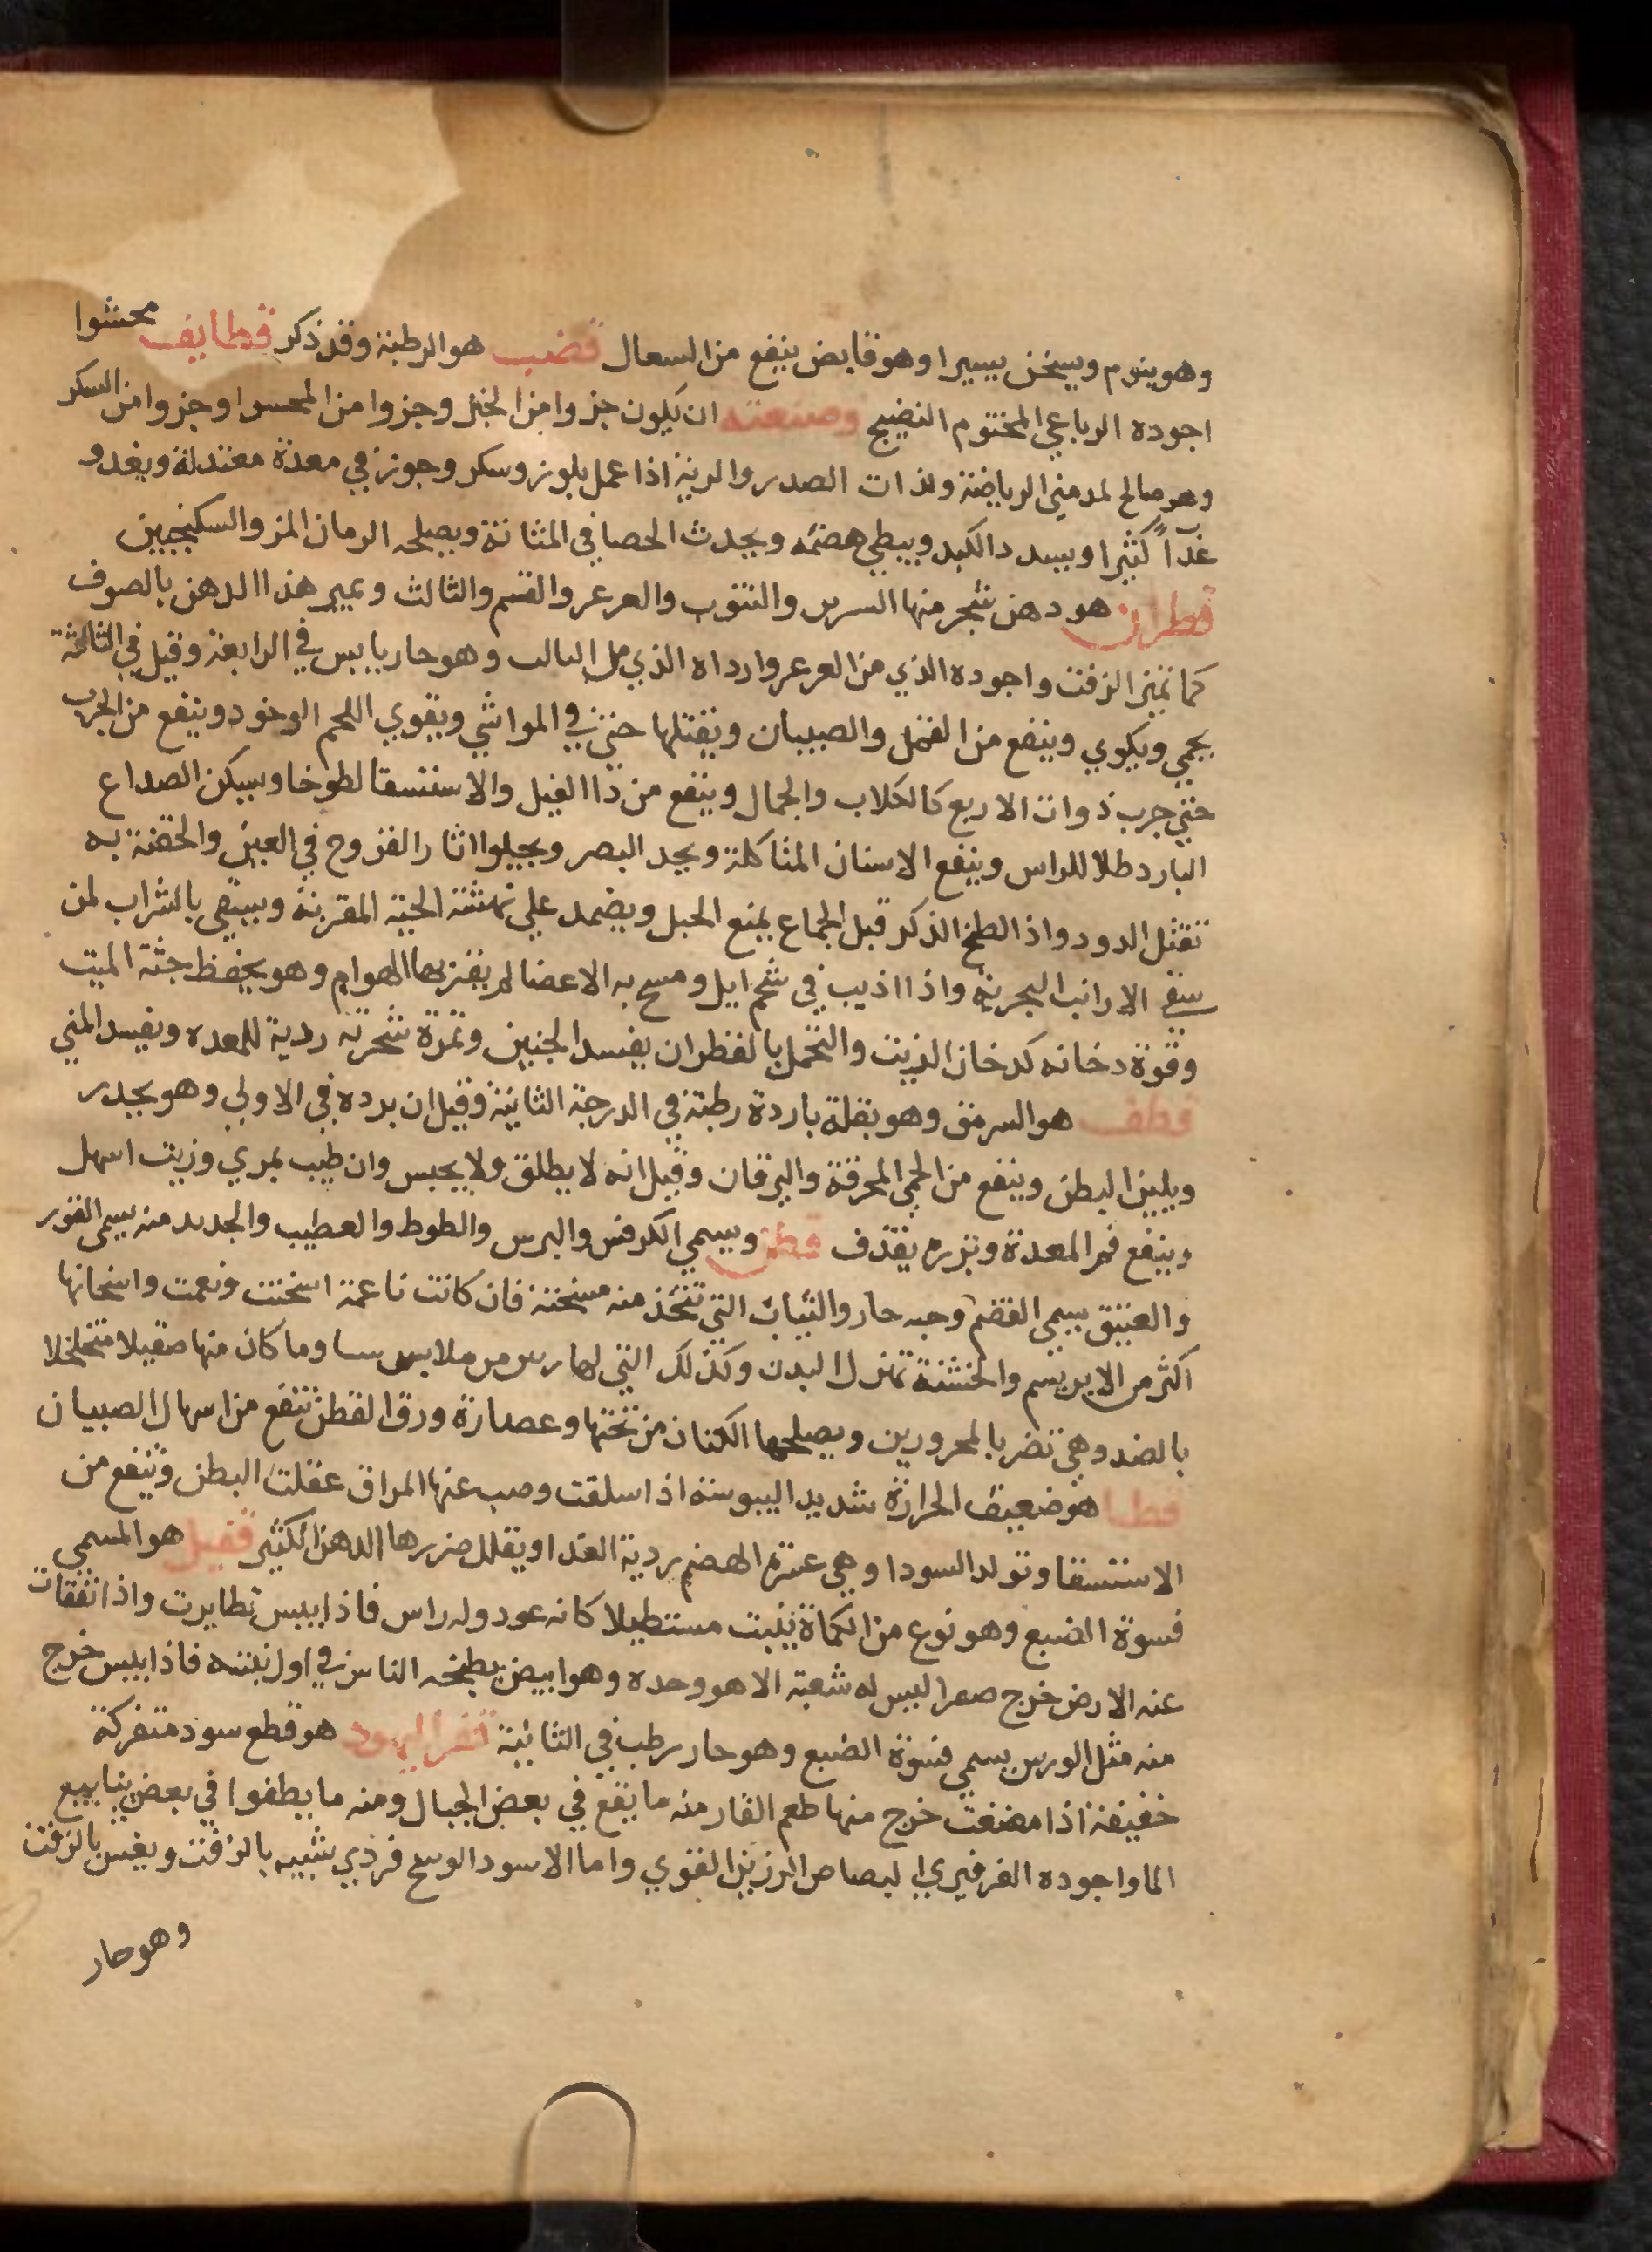 وهو ينوم ويسخن يسيرا وهو قابض ينفع من السعال قضب هو الرطبة وقد ذكر قطايف محشوا
اجوده الرباعي المختوم النضيج وصنعته ان يكون جزوا من الخبز وجزوا من المحسرا وجزوا من السكر
وهو صالح لمدمني الرياضة ولذات الصدر والرية اذا عمل بلوز وسكر وجوز في معدة معتدلة ويغدو
غذآءً كثيرا ويسدد الكبد ويبطي هضمه ويحدث الحصا في المثانة ويصلحه الرمان المز والسكنجبين
قطران هو دهن شجر منها السرس والتنوب والعرعر والقسم والثالث وعيير هذا الدهن بالصوف
كما تميز الزفت واجوده الذي من العرعر وارداه الذي من البالب وهو حار يابس في الرابعة وقيل في الثالثة
يحمي ويكوي وينفع من القمل والصيبان ويقتلها حتي في المواشي ويقوي اللحم الرخو وينفع من الجرب
حتي جرب ذوات الاربع كالكلاب والجمال وينفع من دا الفيل والاستسقا لطوخا ويسكن الصداع
البارد طلا للراس وينفع الاسنان المتاكلة ويحد البصر ويجلوا اثار القروح في العين والحقنة به
تقتل الدود واذا لطخ الذكر قبل الجماع يمنع الحبل ويضمد علي نهشة الحية المقرنة ويسقي بالشراب لمن
سقي الارانب البحرية واذا اذيب في شحم ايل ومسح به الاعضا لم يقربها الهوام وهو يحفظ جثة الميت
وقوة دخانه كدخان الزيت والتحمل بالقطران يفسد الجنين وثمرة شجرته ردية للمعده ويفسد المني
قطف هو السرمق وهو بقلة باردة رطبة في الدرجة الثانية وقيل ان برده في الاولي وهو يحدر
ويلين البطن وينفع من الحمي المحرقة واليرقان وقيل انه لا يطلق ولا يحبس وان طيب بمري وزيت اسهل
وينفع فم المعدة وبزره يقذف قطن ويسمي الكرفس والبرس والطوط والعطيب والجديد منه يسمى القور
والعتيق يسمي القضم وحبه حار والثياب التي تتخذ منه مسخنة فان كانت ناعمة اسخنت ونعمت واسخانها
اكثر من الابريسم والخشنة تهزل البدن وكذلك التي لها من ملابس وما كان منها صقيلا متخلخلا
بالضد وهي تضر بالمحرورين ويصلحها الكتان من تحتها وعصارة ورق القطن تنفع من اسهال الصبيان
قطا هو ضعيف الحرارة شديد اليبوسة اذا سلقت وصب عنها المراق عقلت البطن وتنفع من
الاستسقا وتولد السودا وهي عسرة الهضم ردية الغذا ويقلل ضررها الدهن الكثير قفيل هو المسمي
فسوة الضبع وهو نوع من الكماة ينبت مستطيلا كانه عود وله راس فاذا يبس تطايرت واذا تفقات
عنه الارض خرج صعرا ليس له شعبة الا هو وحده وهو ابيض يطبخه الناس في اول نبته فاذا يبس خرج
منه مثل الورس يسمي فسوة الضبع وهو حار رطب في الثانية قفر اليهود هو قطع سود متفركة
خفيفة اذا مضغت خرج منها طعم القار منه ما يقع في بعض الجبال ومنه ما يطفوا في بعض ينابيع
الما واجوده الفرفيري البصاص الرزين القوي واما الاسود الوسخ فردي شبيه بالزفت ويغش بالزفت
وهو حار